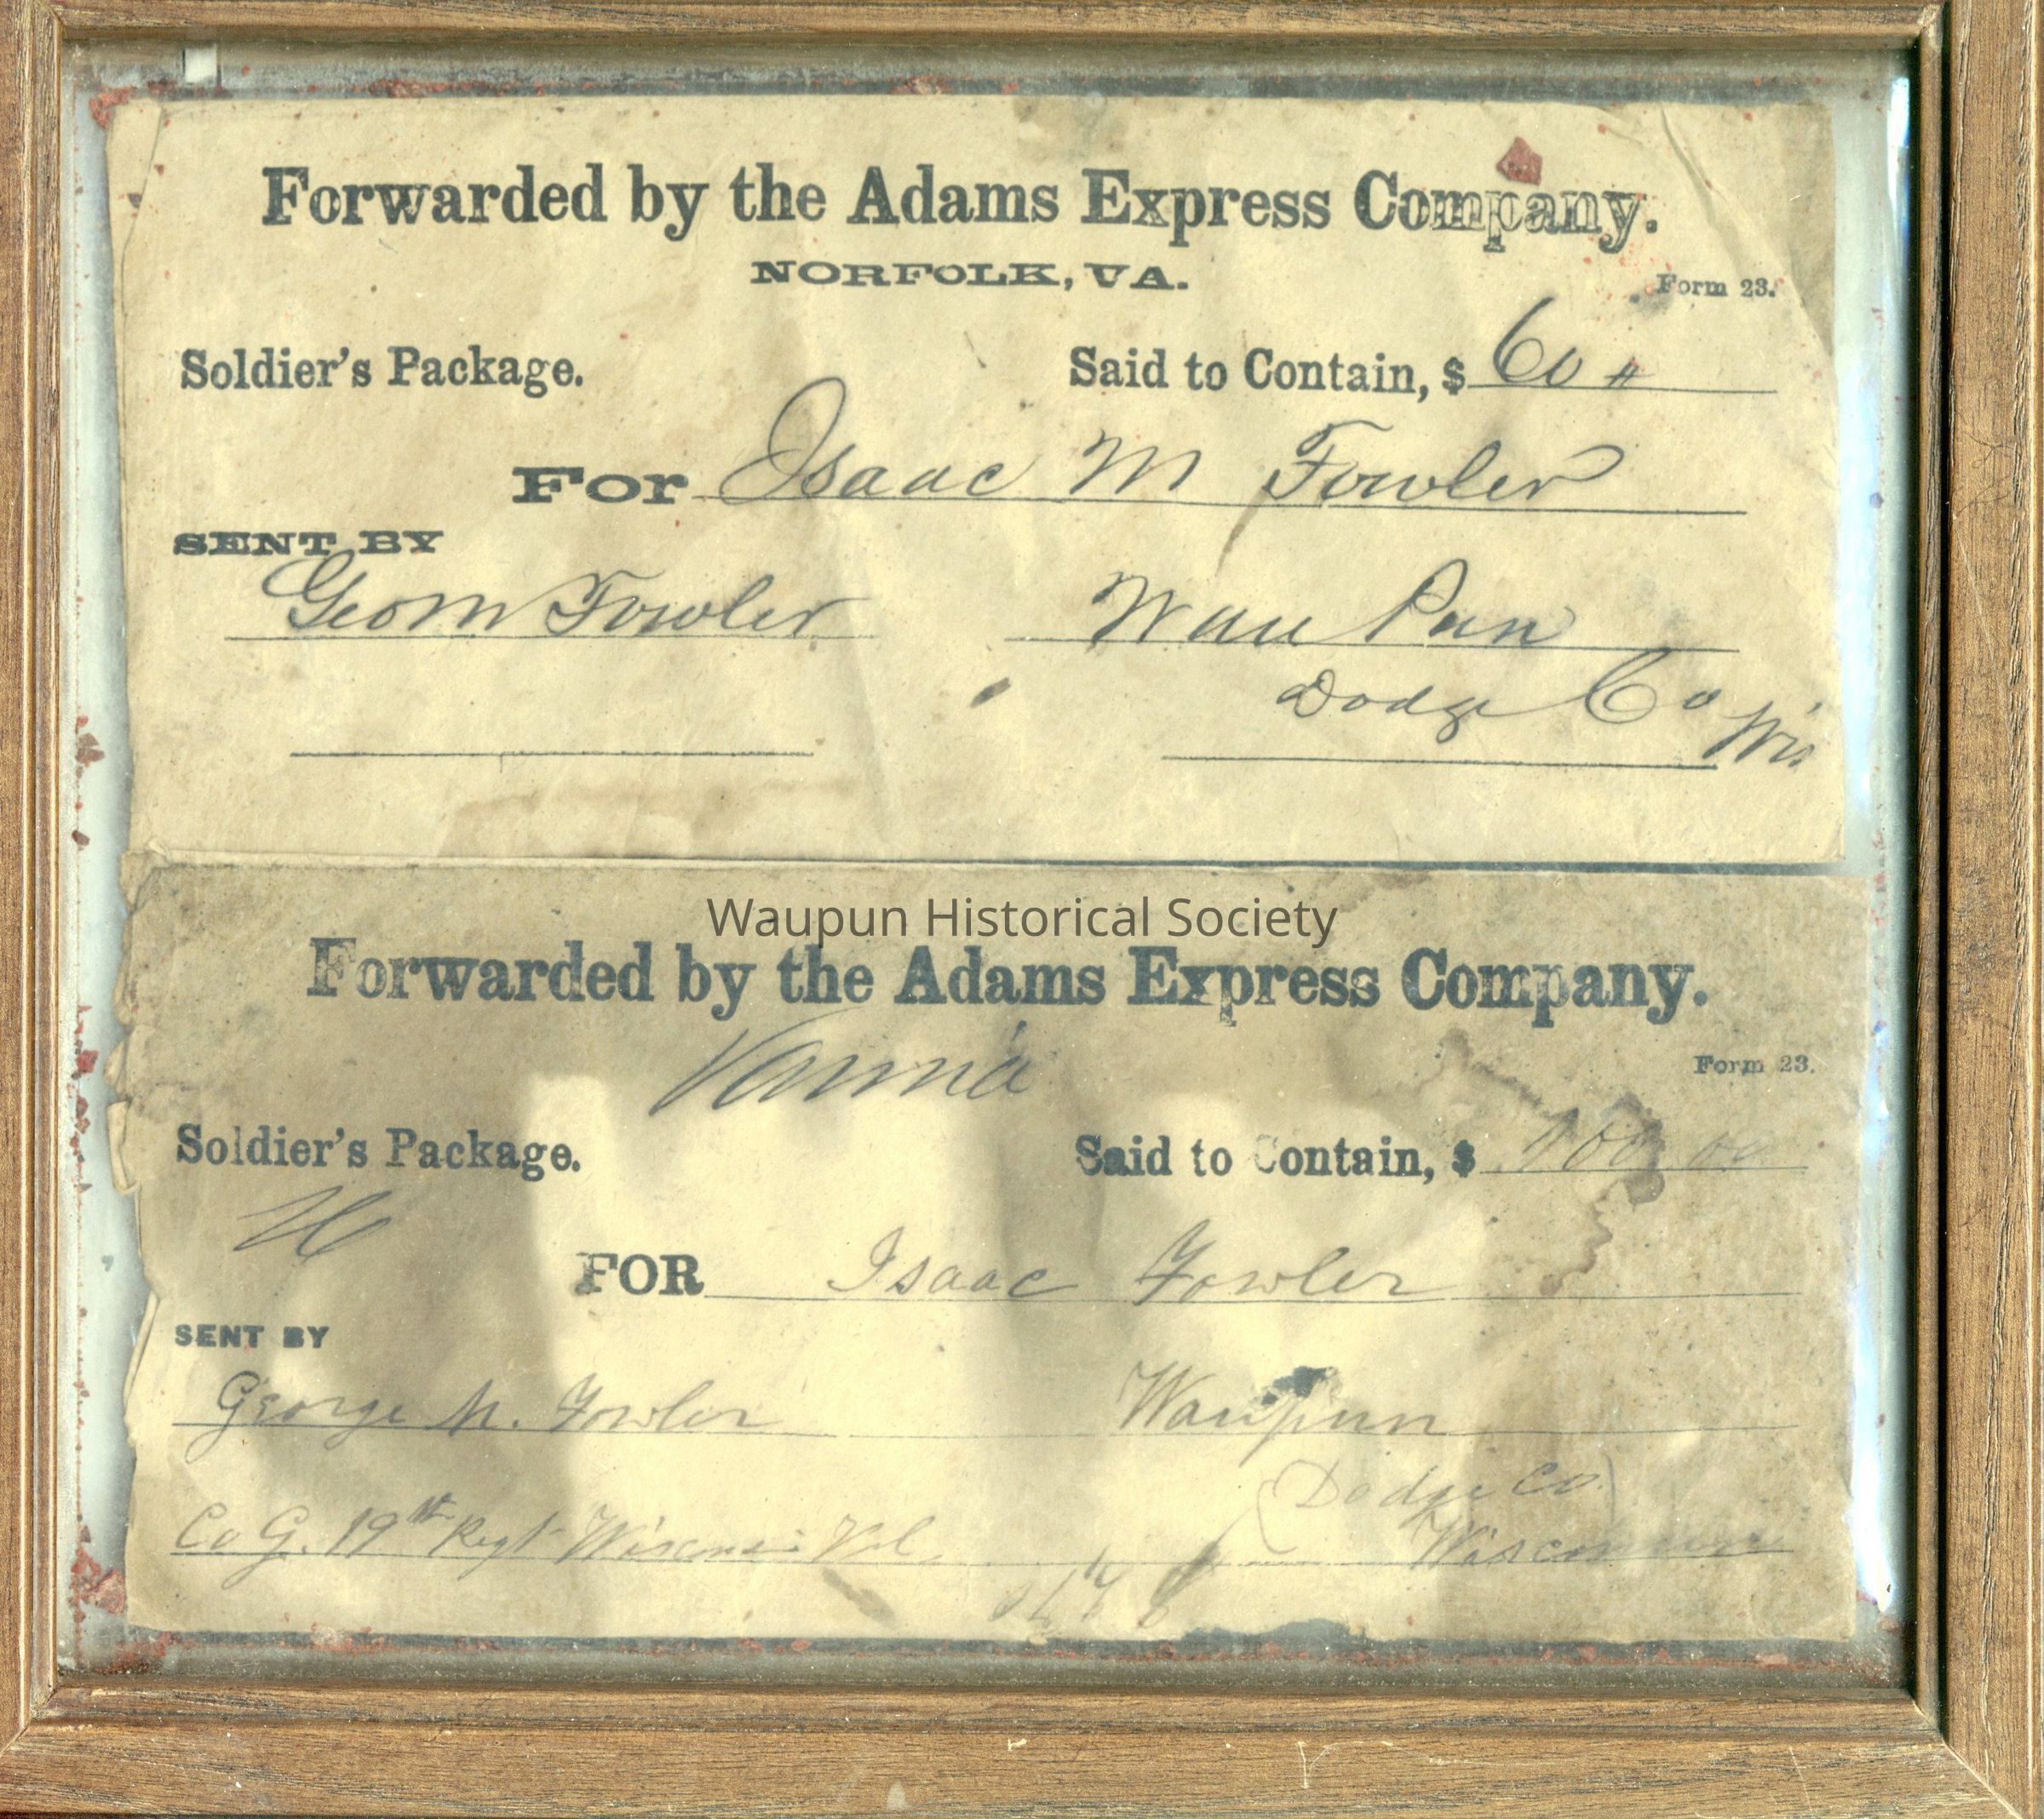 Forwarded by the Adams Express Company.
NORFOLK, VA.
Form 23.
Soldier's Package. Said to Contain, $ 60
For Isaac M Fowler
SENT BY
Geo M Fowler Wau Pun
Dodge Co Wis
Waupun Historical Society
Forwarded by the Adams Express Company.
Form 23.
Soldier's Package. Said to Contain, $ 100 00
FOR Isaac Fowler
SENT BY
George M. Fowler Waupun
Dodge Co.
Co G. 19th Regt Wisconsin Vol. Wisconsin